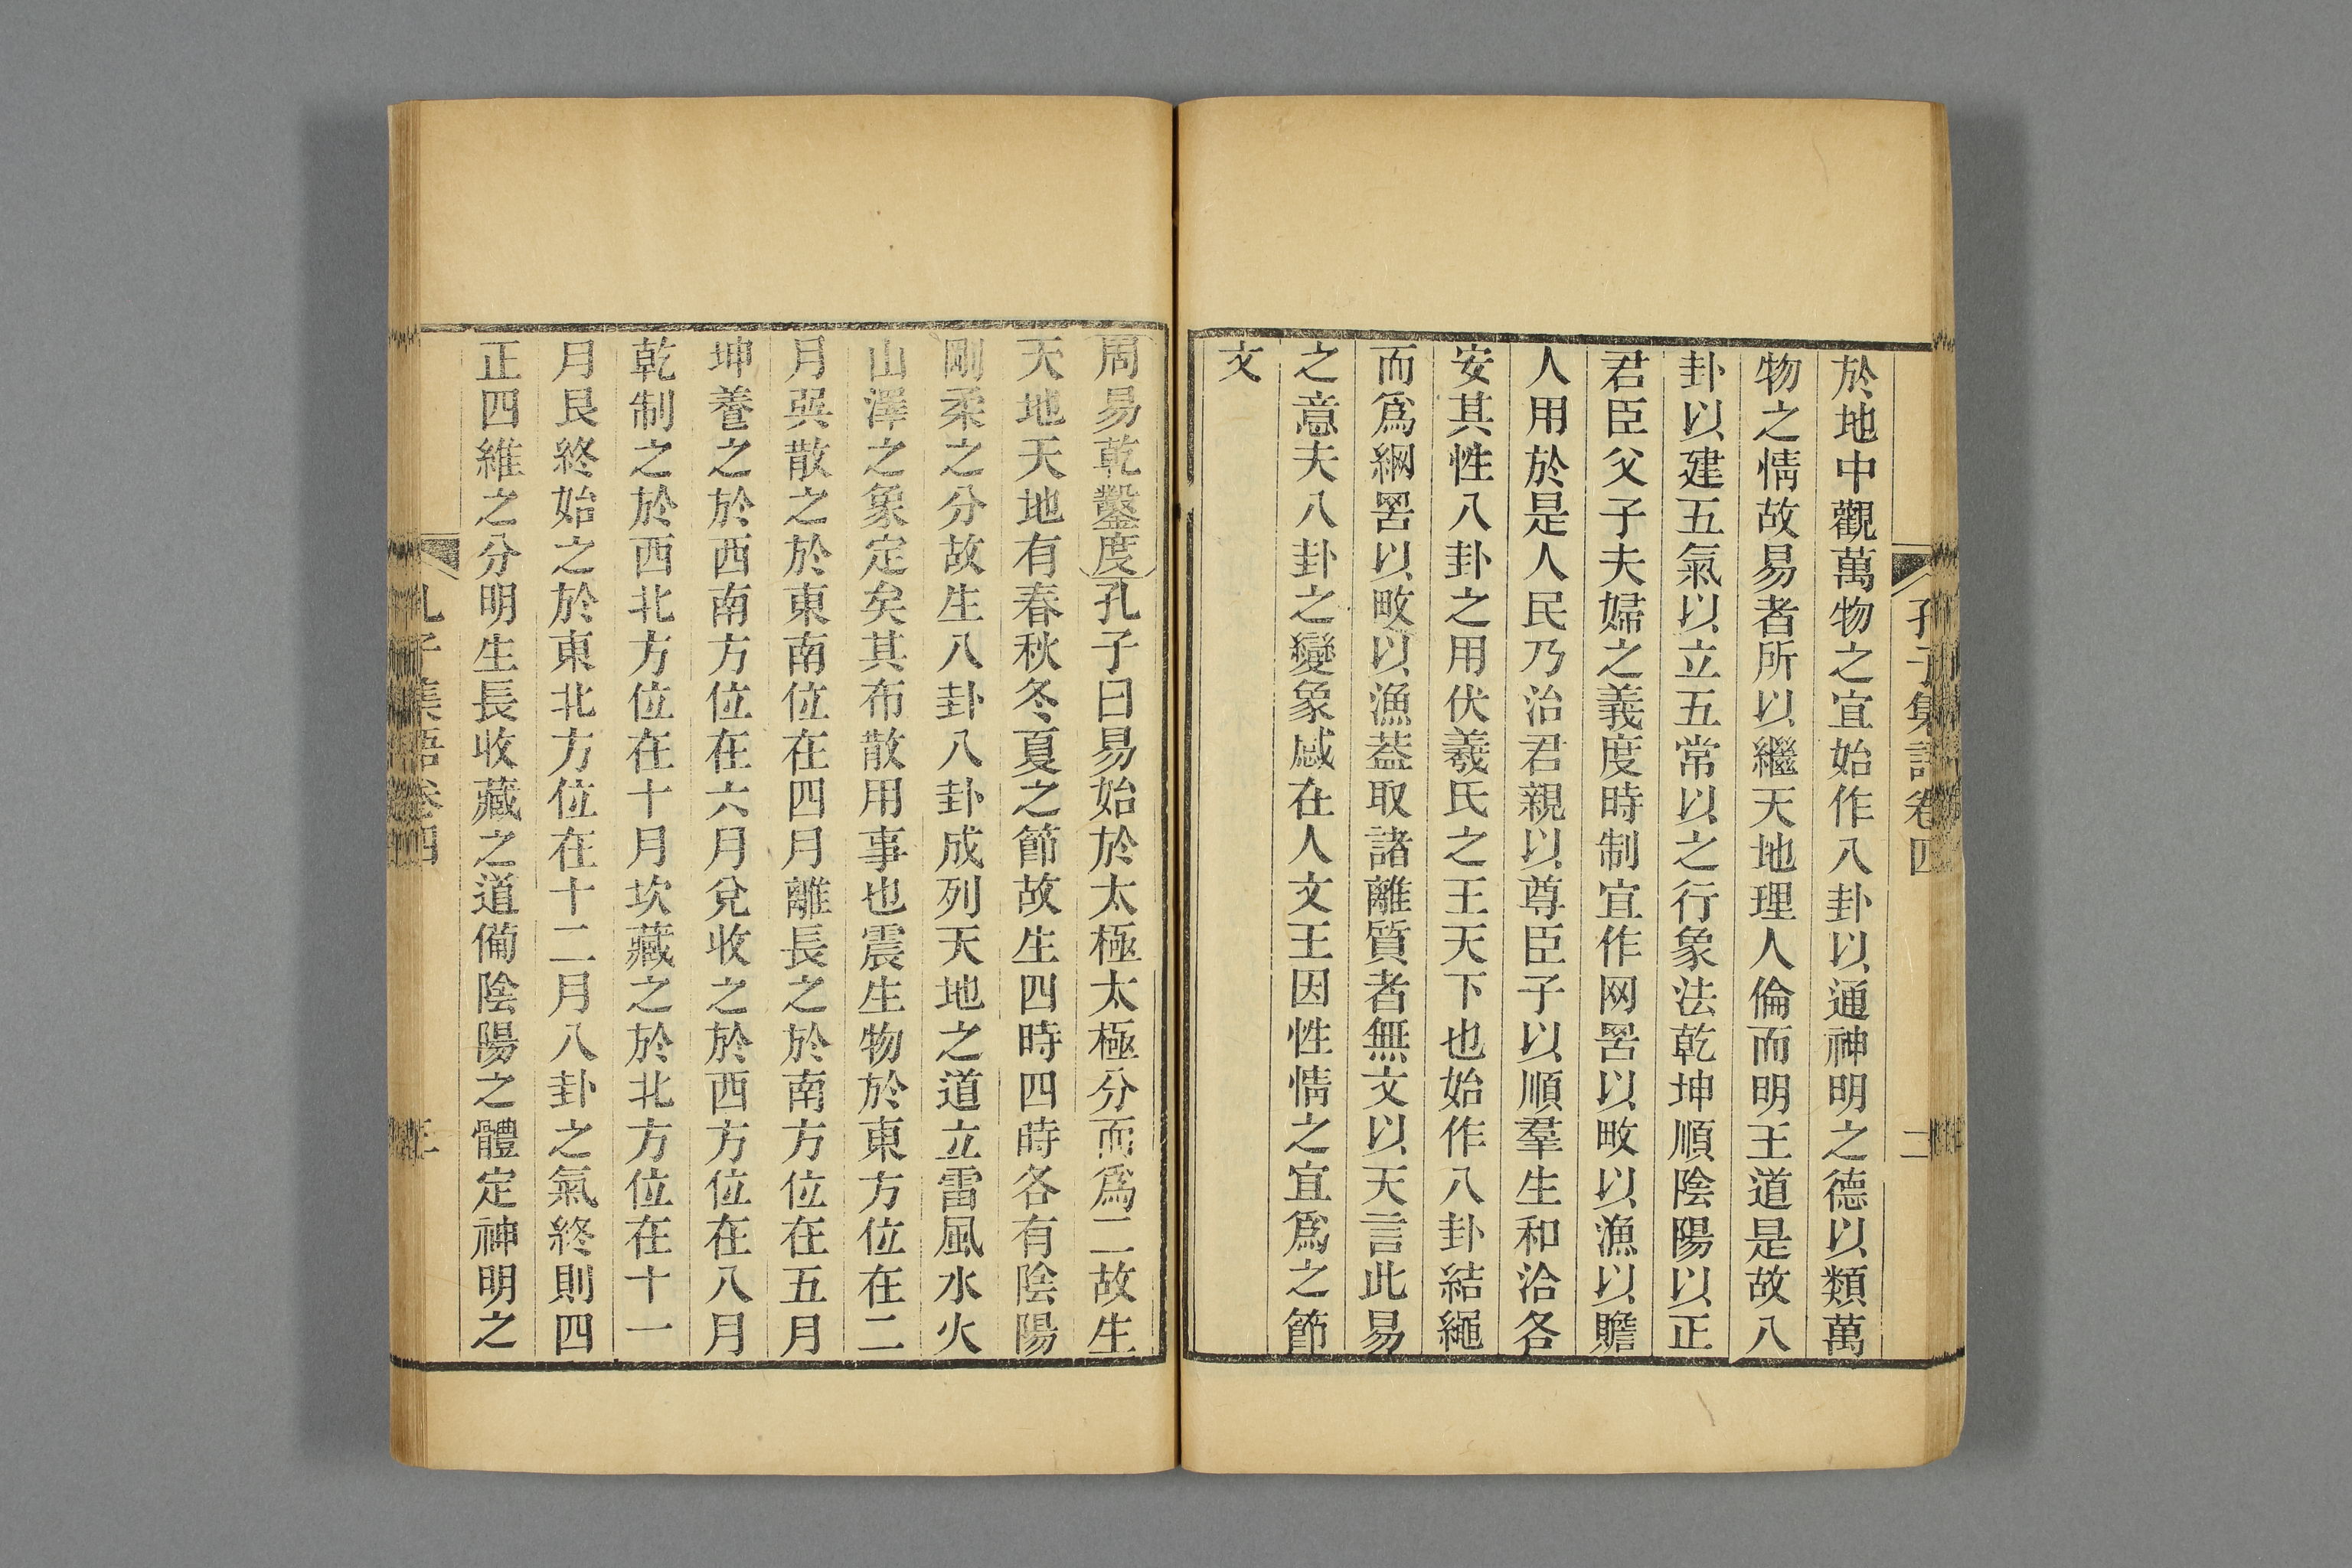 孔子集語卷四
二
於地中觀萬物之宜始作八卦以通神明之德以類萬
物之情故易者所以繼天地理人倫而明王道是故八
卦以建五氣以立五常以之行象法乾坤順陰陽以正
君臣父子夫婦之義度時制宜作网罟以畋以漁以贍
人用於是人民乃治君親以尊臣子以順羣生和洽各
安其性八卦之用伏羲氏之王天下也始作八卦結繩
而爲網罟以畋以漁葢取諸離質者無文以天言此易
之意夫八卦之變象感在人文王因性情之宜爲之節
文
周易乾鑿度孔子曰易始於太極太極分而爲二故生
天地天地有春秋冬夏之節故生四時四時各有陰陽
剛柔之分故生八卦八卦成列天地之道立雷風水火
山澤之象定矣其布散用事也震生物於東方位在二
月巽散之於東南位在四月離長之於南方位在五月
坤養之於西南方位在六月兌收之於西方位在八月
乾制之於西北方位在十月坎藏之於北方位在十一
月艮終始之於東北方位在十二月八卦之氣終則四
正四維之分明生長收藏之道備陰陽之體定神明之
孔子集語卷四
三